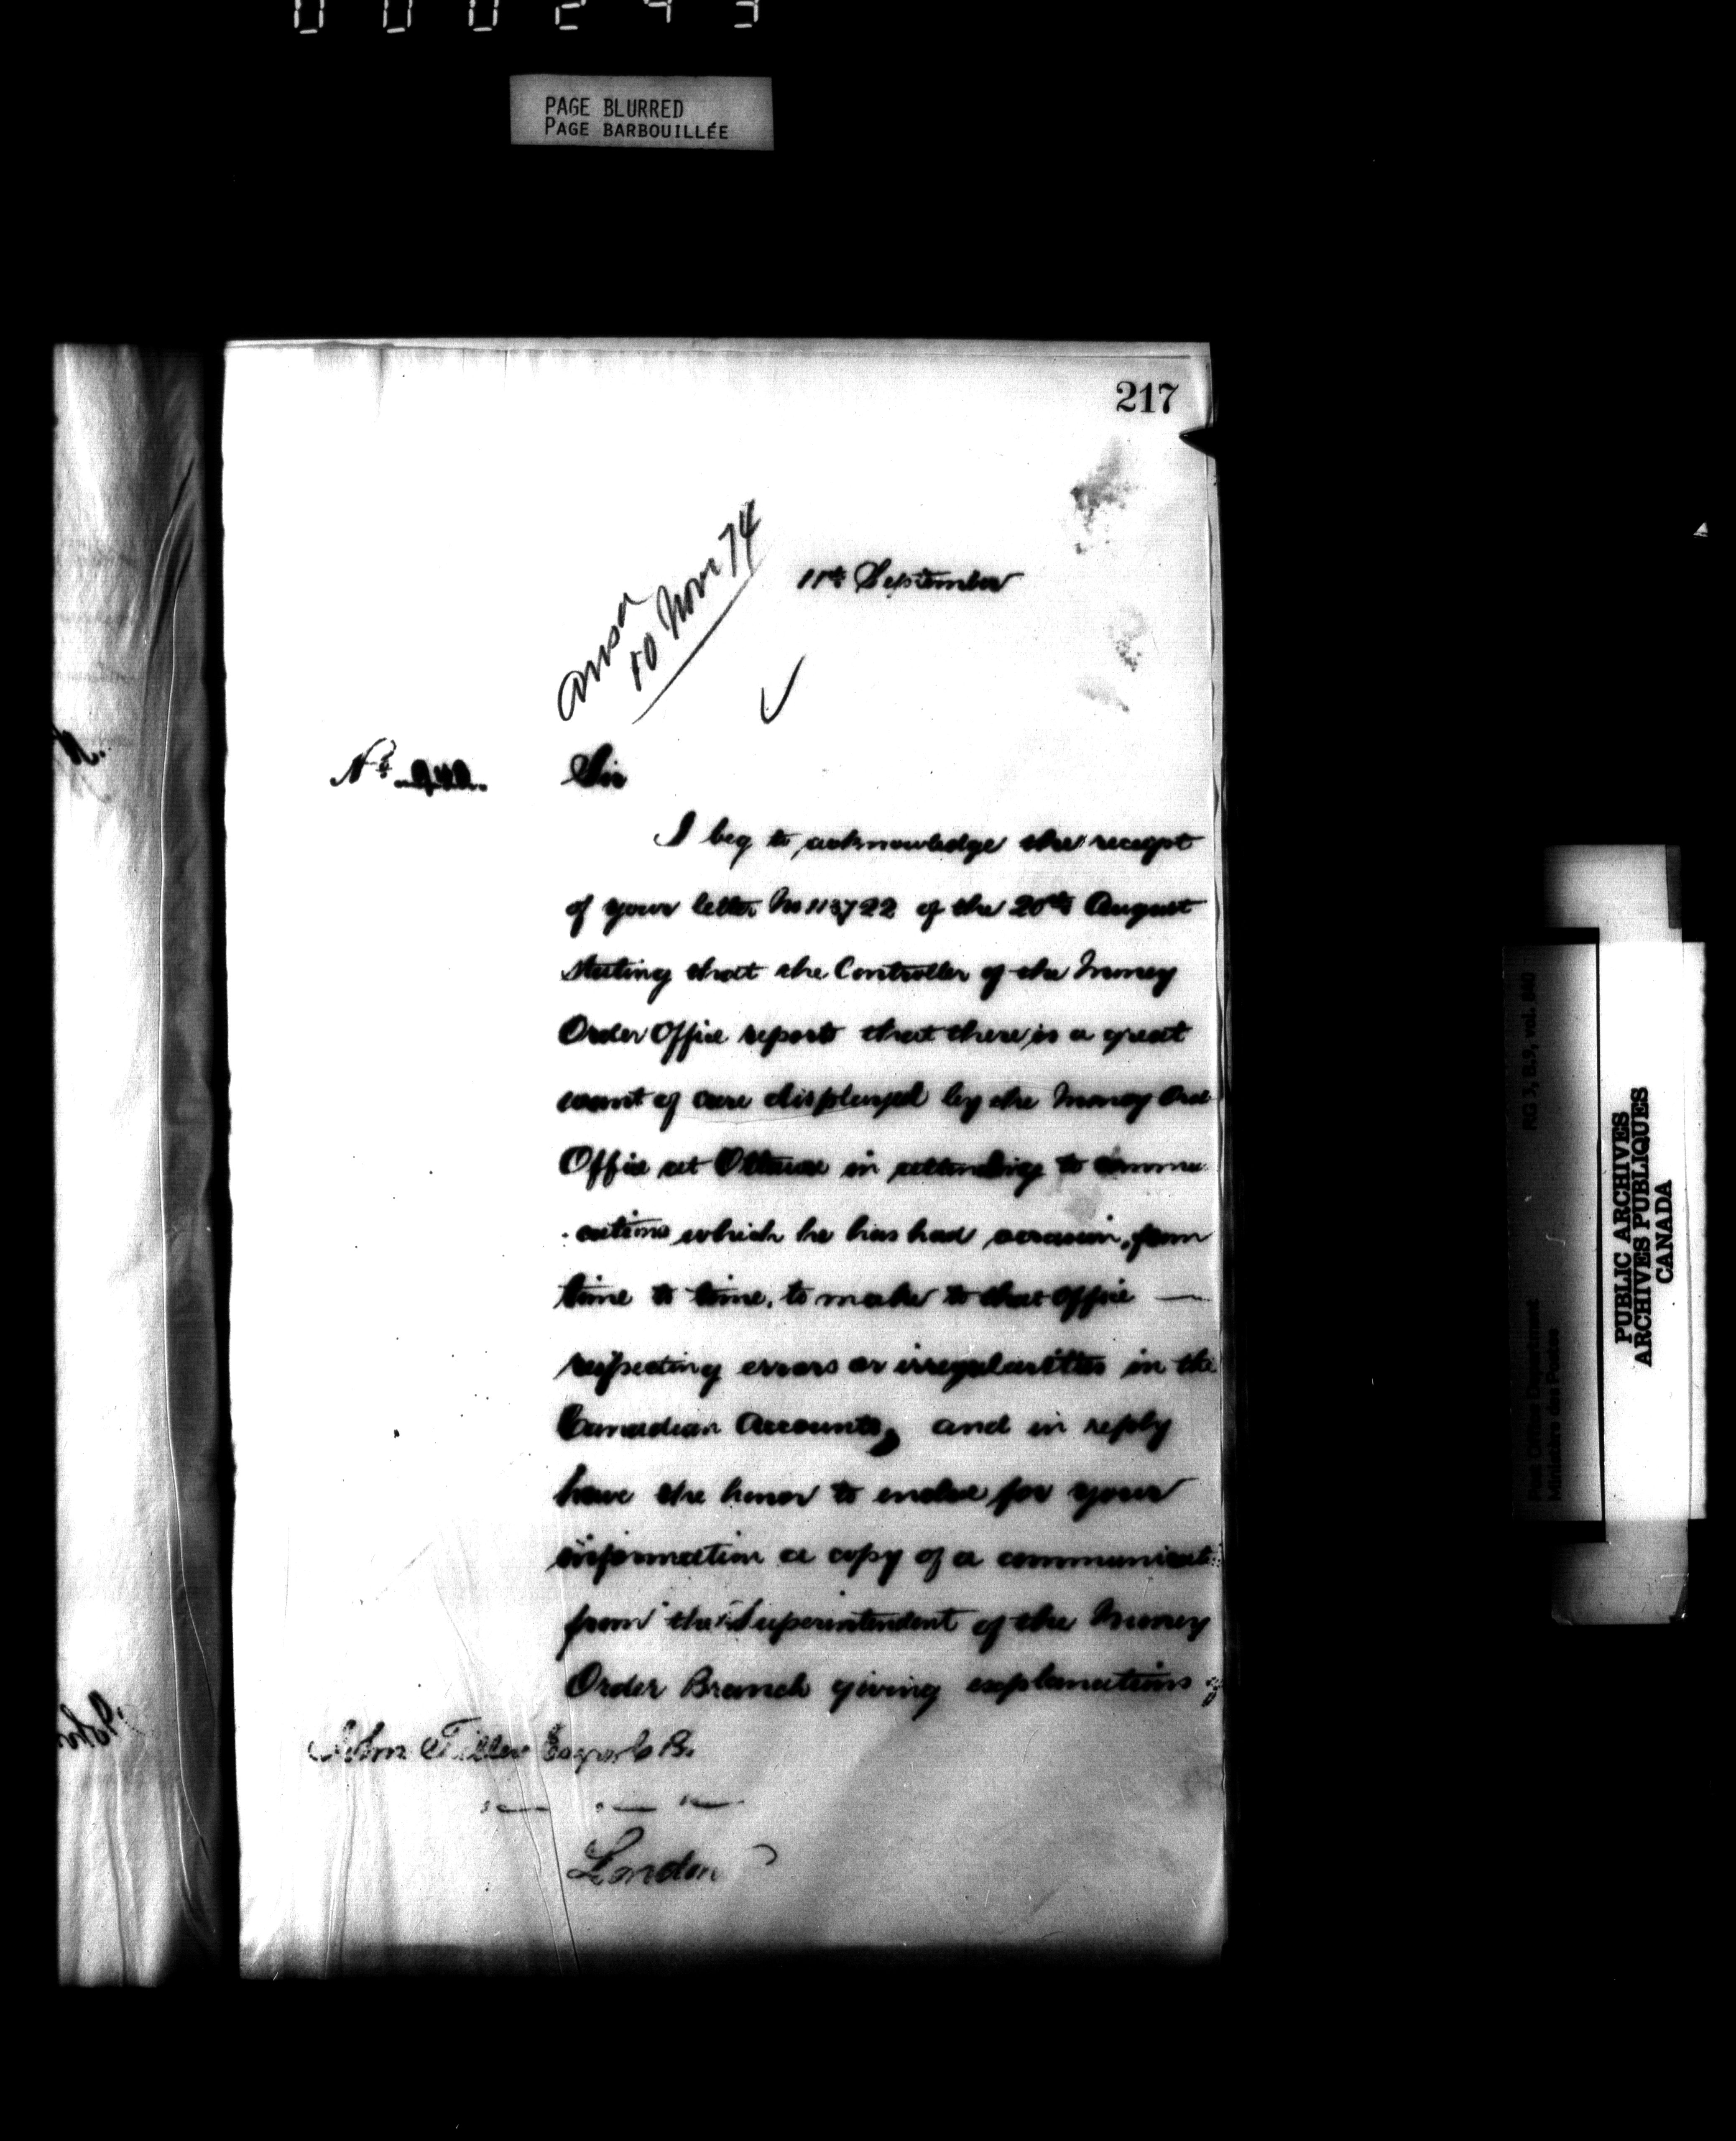 000243
PAGE BLURRED
PAGE BARBOUILLÉE
217
ansd
10 Nov 74
11th September
No
Sir
I beg to acknowledge the receipt
of your letter No 113722 of the 20th August
stating that the Controller of the Money
Order Office reports that there is a great
want of care displayed by the Money Ord
Office at Ottawa in attending to commu
cations which he has had occasion, from
time to time, to make to that Office —
respecting errors or irregularities in the
Canadian Accounts, and in reply
have the honor to enclose for your
information a copy of a communicat
from the Superintendent of the Money
Order Branch giving explanations of
John Tilley Esqr C.B.
London
RG 3, B.9, vol. 840
Post Office Department
Ministère des Postes
PUBLIC ARCHIVES
ARCHIVES PUBLIQUES
CANADA